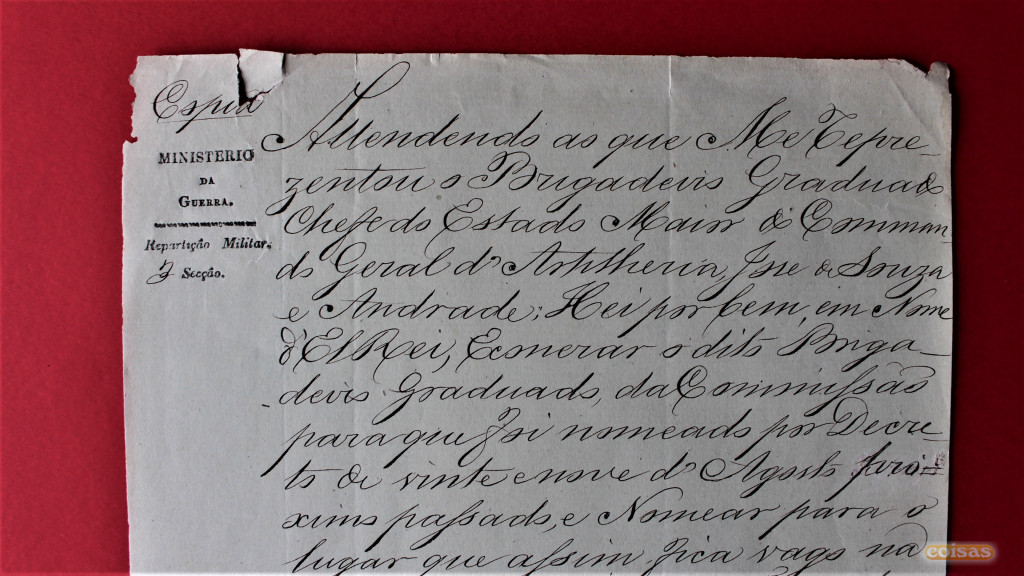 Espdo
MINISTERIO
DA
GUERRA.
Repartição Militar.
2 Secção.
Attendendo ao que Me Repre-
zentou o Brigadeiro Graduado
Chefe do Estado Maior do Comman-
do Geral d'Artilheria, Jose de Souza
e Andrade; Hei por bem, em Nome
d'ElRei, Exonerar o dito Briga-
deiro Graduado, da Commissão
para que foi nomeado por Decre-
to de vinte e nove d'Agosto proi-
ximo passado, e Nomear para o
lugar que assim fica vago na
coisas